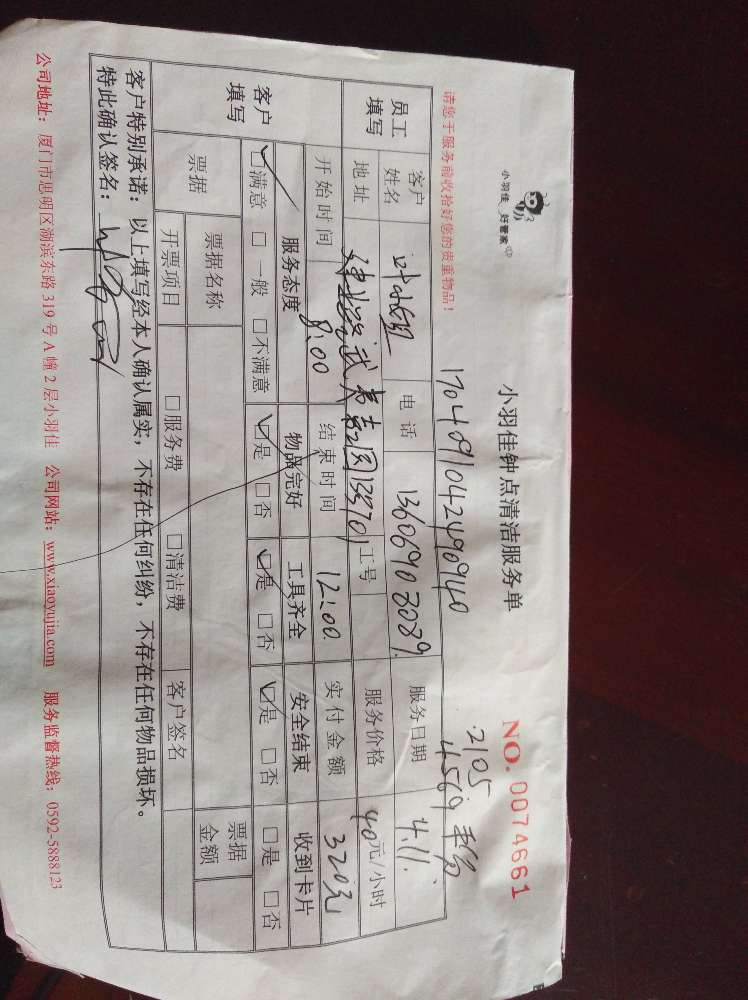 小羽佳 好管家
小羽佳钟点清洁服务单
NO. 0074661
请您于服务前收拾好您的贵重物品！
1704091042490940
2105
4569
员工填写
客户姓名
电话
13606903089
服务日期
4.11.
地址
建发 武夷嘉园 13701
工号
服务价格
40元/小时
开始时间
8:00
结束时间
12:00
实付金额
320元
客户填写
服务态度
物品完好
工具齐全
安全结束
收到卡片
☑满意 □ 一般 □不满意
☑是 □否
☑是 □否
☑是 □否
□是 □否
票据
票据名称
票据金额
开票项目
□服务费
□清洁费
客户签名
客户特别承诺：以上填写经本人确认属实，不存在任何纠纷，不存在任何物品损坏。
特此确认签名：
公司地址：厦门市思明区湖滨东路 319 号 A 幢 2 层小羽佳 公司网站：www.xiaoyujia.com 服务监督热线：0592-5888123